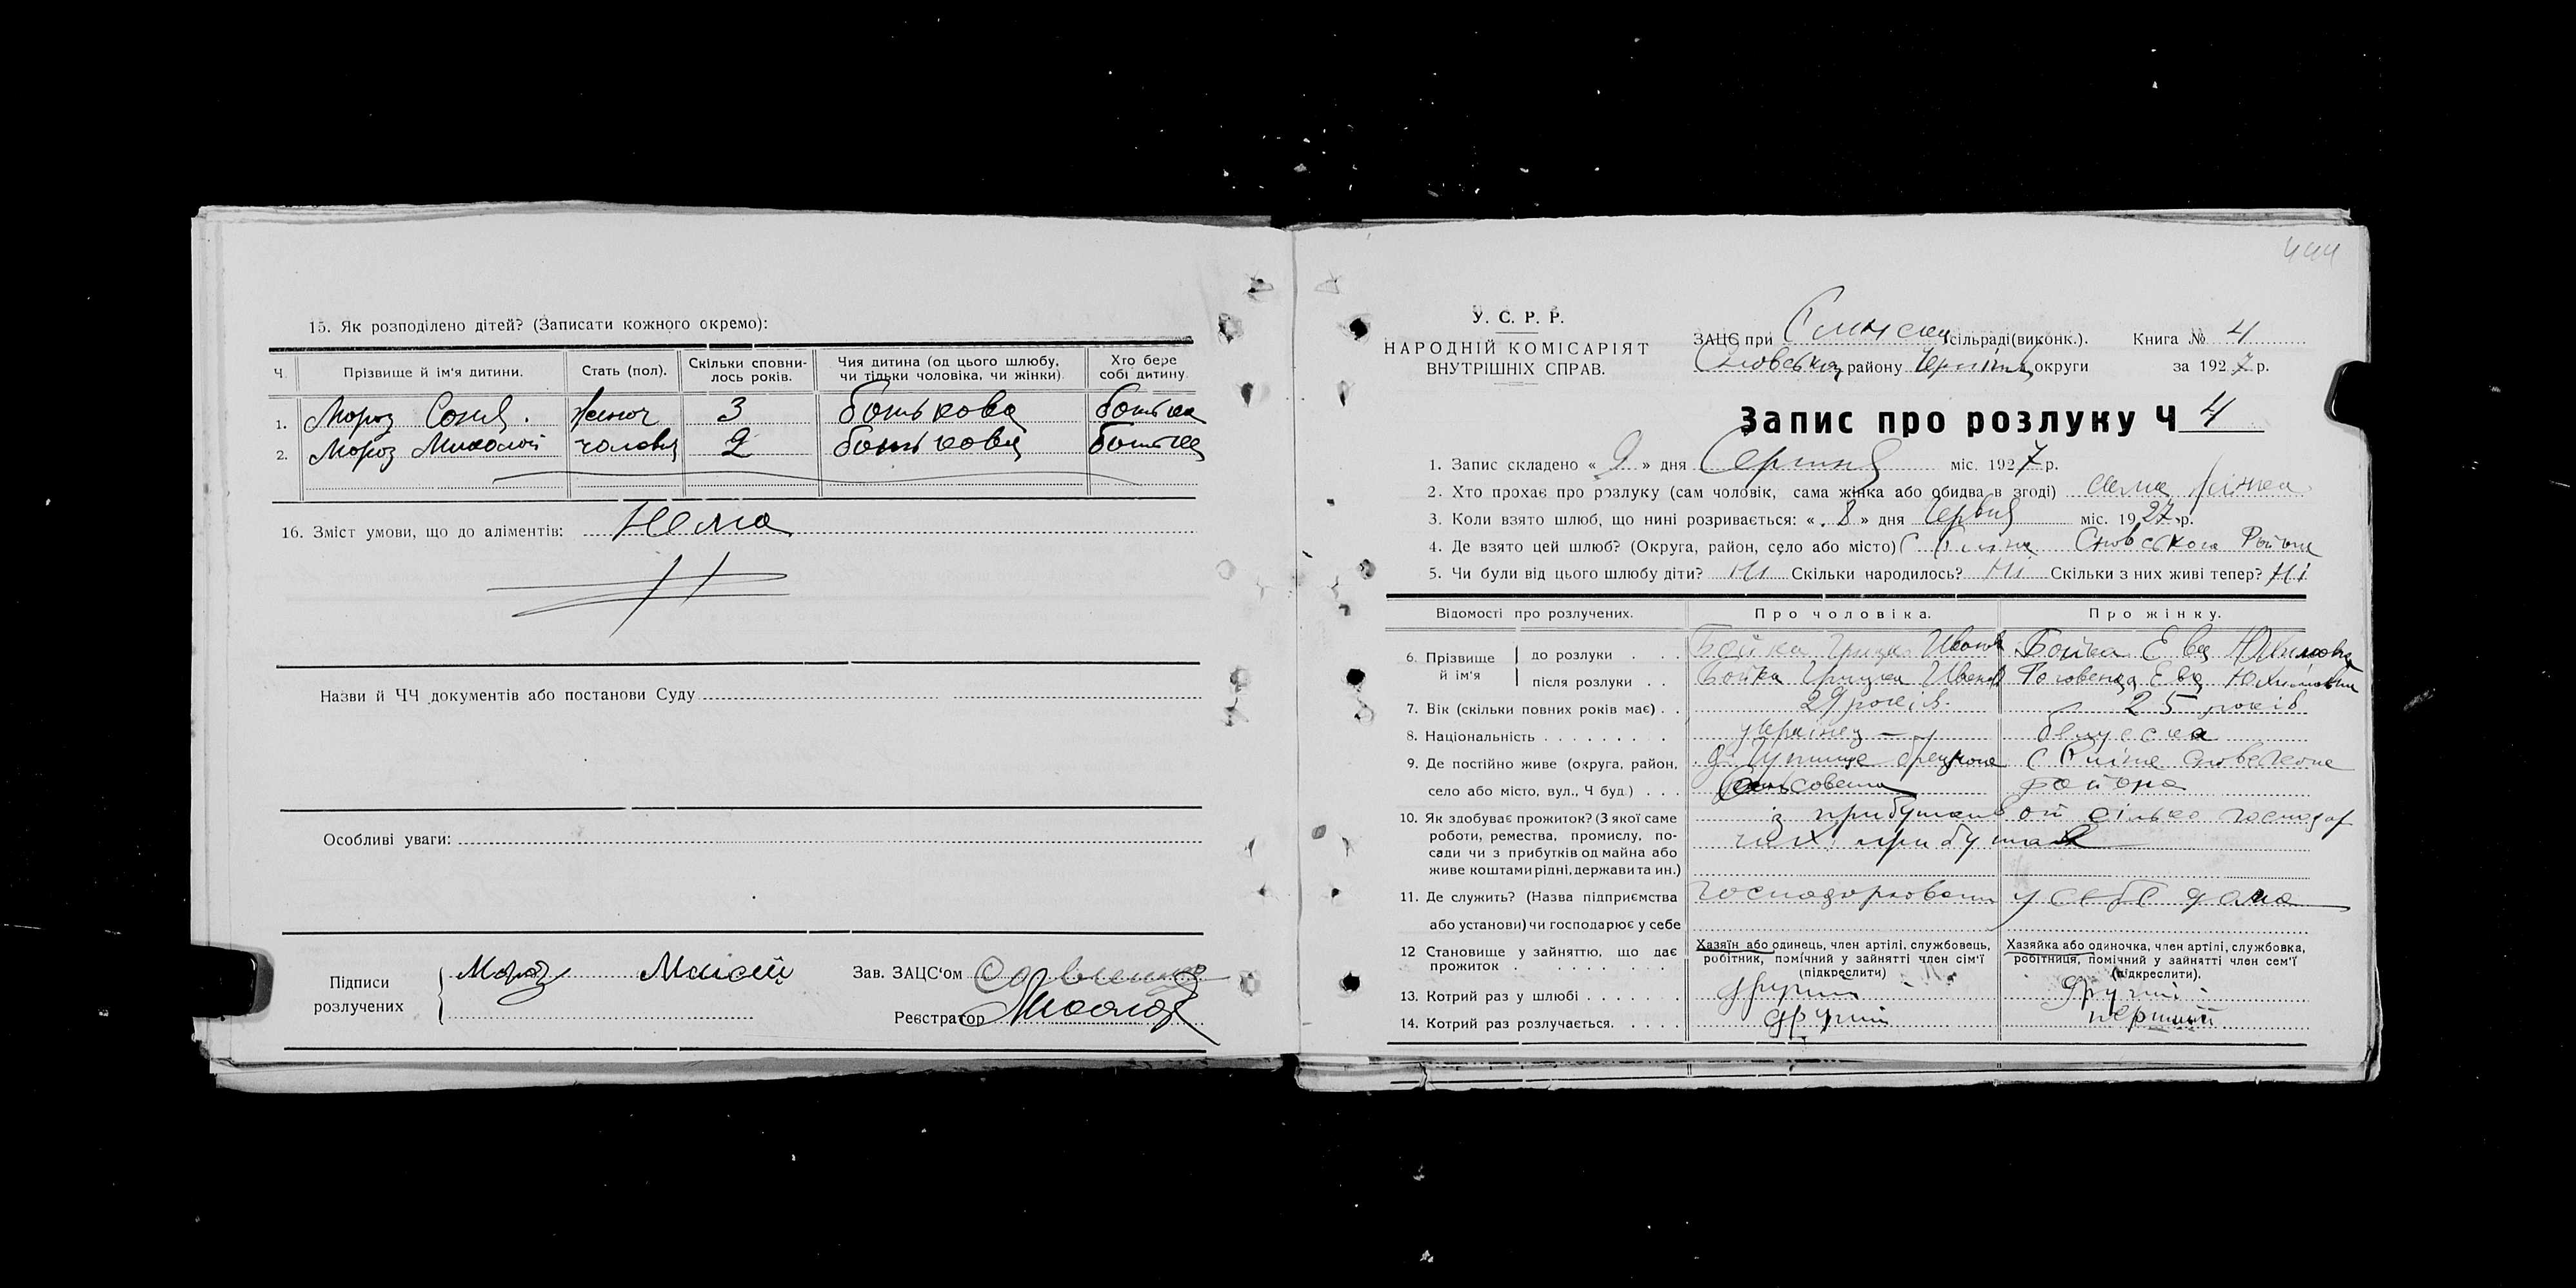 15. Як розподілено дітей? (Записати кожного окремо):
Ч. Прізвище й ім'я дитини. Стать (пол). Скільки сповнилось років. Чия дитина (од цього шлюбу, чи тільки чоловіка, чи жінки) Хто бере собі дитину.
1. Мороз Соня. 3 батькова батько
2. Мороз Миколай 2 батькова батько
16. Зміст умови, що до аліментів: Нема
Назви й ЧЧ документів або постанови Суду
Особливі уваги:
Підписи розлучених Мороз Мойсей
Зав. ЗАЦС'ом
Реєстратор
444
У. С. Р. Р.
НАРОДНІЙ КОМІСАРІЯТ
ВНУТРІШНІХ СПРАВ.
ЗАЦС при сільраді(виконк.). Книга № 4
району округи за 1927 р.
Запис про розлуку Ч 4
1. Запис складено « 9 » дня Серпня міс. 1927 р.
2. Хто прохає про розлуку (сам чоловік, сама жінка або обидва в згоді) сама жінка
3. Коли взято шлюб, що нині розривається: « 8 » дня Червня міс. 1927 р.
4. Де взято цей шлюб? (Округа, район, село або місто) Сновського
5. Чи були від цього шлюбу діти? Ні Скільки народилось? Ні Скільки з них живі тепер? Ні
Відомості про розлучених. Про чоловіка. Про жінку.
6. Прізвище й ім'я
до розлуки Бойка Грицка Иванов Бойка Ева Юхимовна
після розлуки Бойка Грицка Иванов Ева Юхимовна
7. Вік (скільки повних років має) 29 років. 25 років
8. Національність українец
9. Де постійно живе (округа, район,
село або місто, вул., Ч буд.) района
10. Як здобуває прожиток? (З якої саме
роботи, ремества, промислу, по-
сади чи з прибутків од майна або
живе коштами рідні, держави та ин.)
11. Де служить? (Назва підприємства у себе дома
або установи) чи господарює у себе
12 Становище у зайняттю, що дає прожиток
Хазяїн або одинець, член артілі, службовець,
робітник, помічний у зайнятті член сім'ї
(підкреслити)
Хазяйка або одиночка, член артілі, службовка,
робітниця, помічний у зайнятті член сем'ї
(підкреслити).
13. Котрий раз у шлюбі другий другий
14. Котрий раз розлучається. другий первый